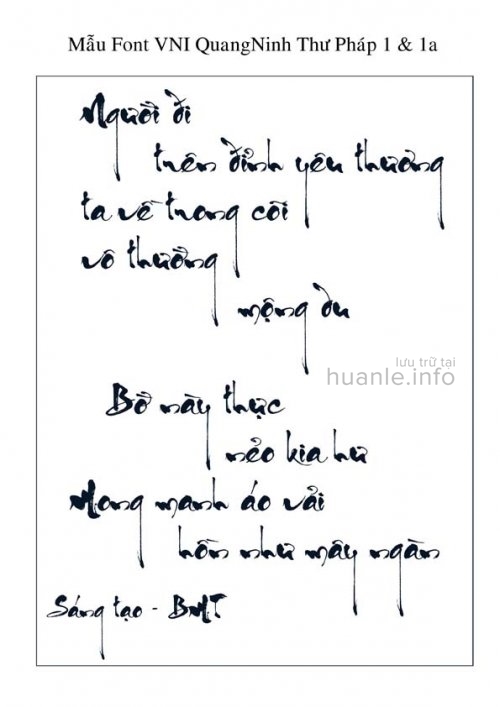 Mẫu Font VNI QuangNinh Thư Pháp 1 & 1a
Người đi
trên đỉnh yêu thương
ta về trong cõi
vô thường
mộng du
lưu trữ tại
huanle.info
Bờ này thực
nẻo kia hư
Mong manh áo vải
hồn như mây ngàn
Sáng tạo - BMT